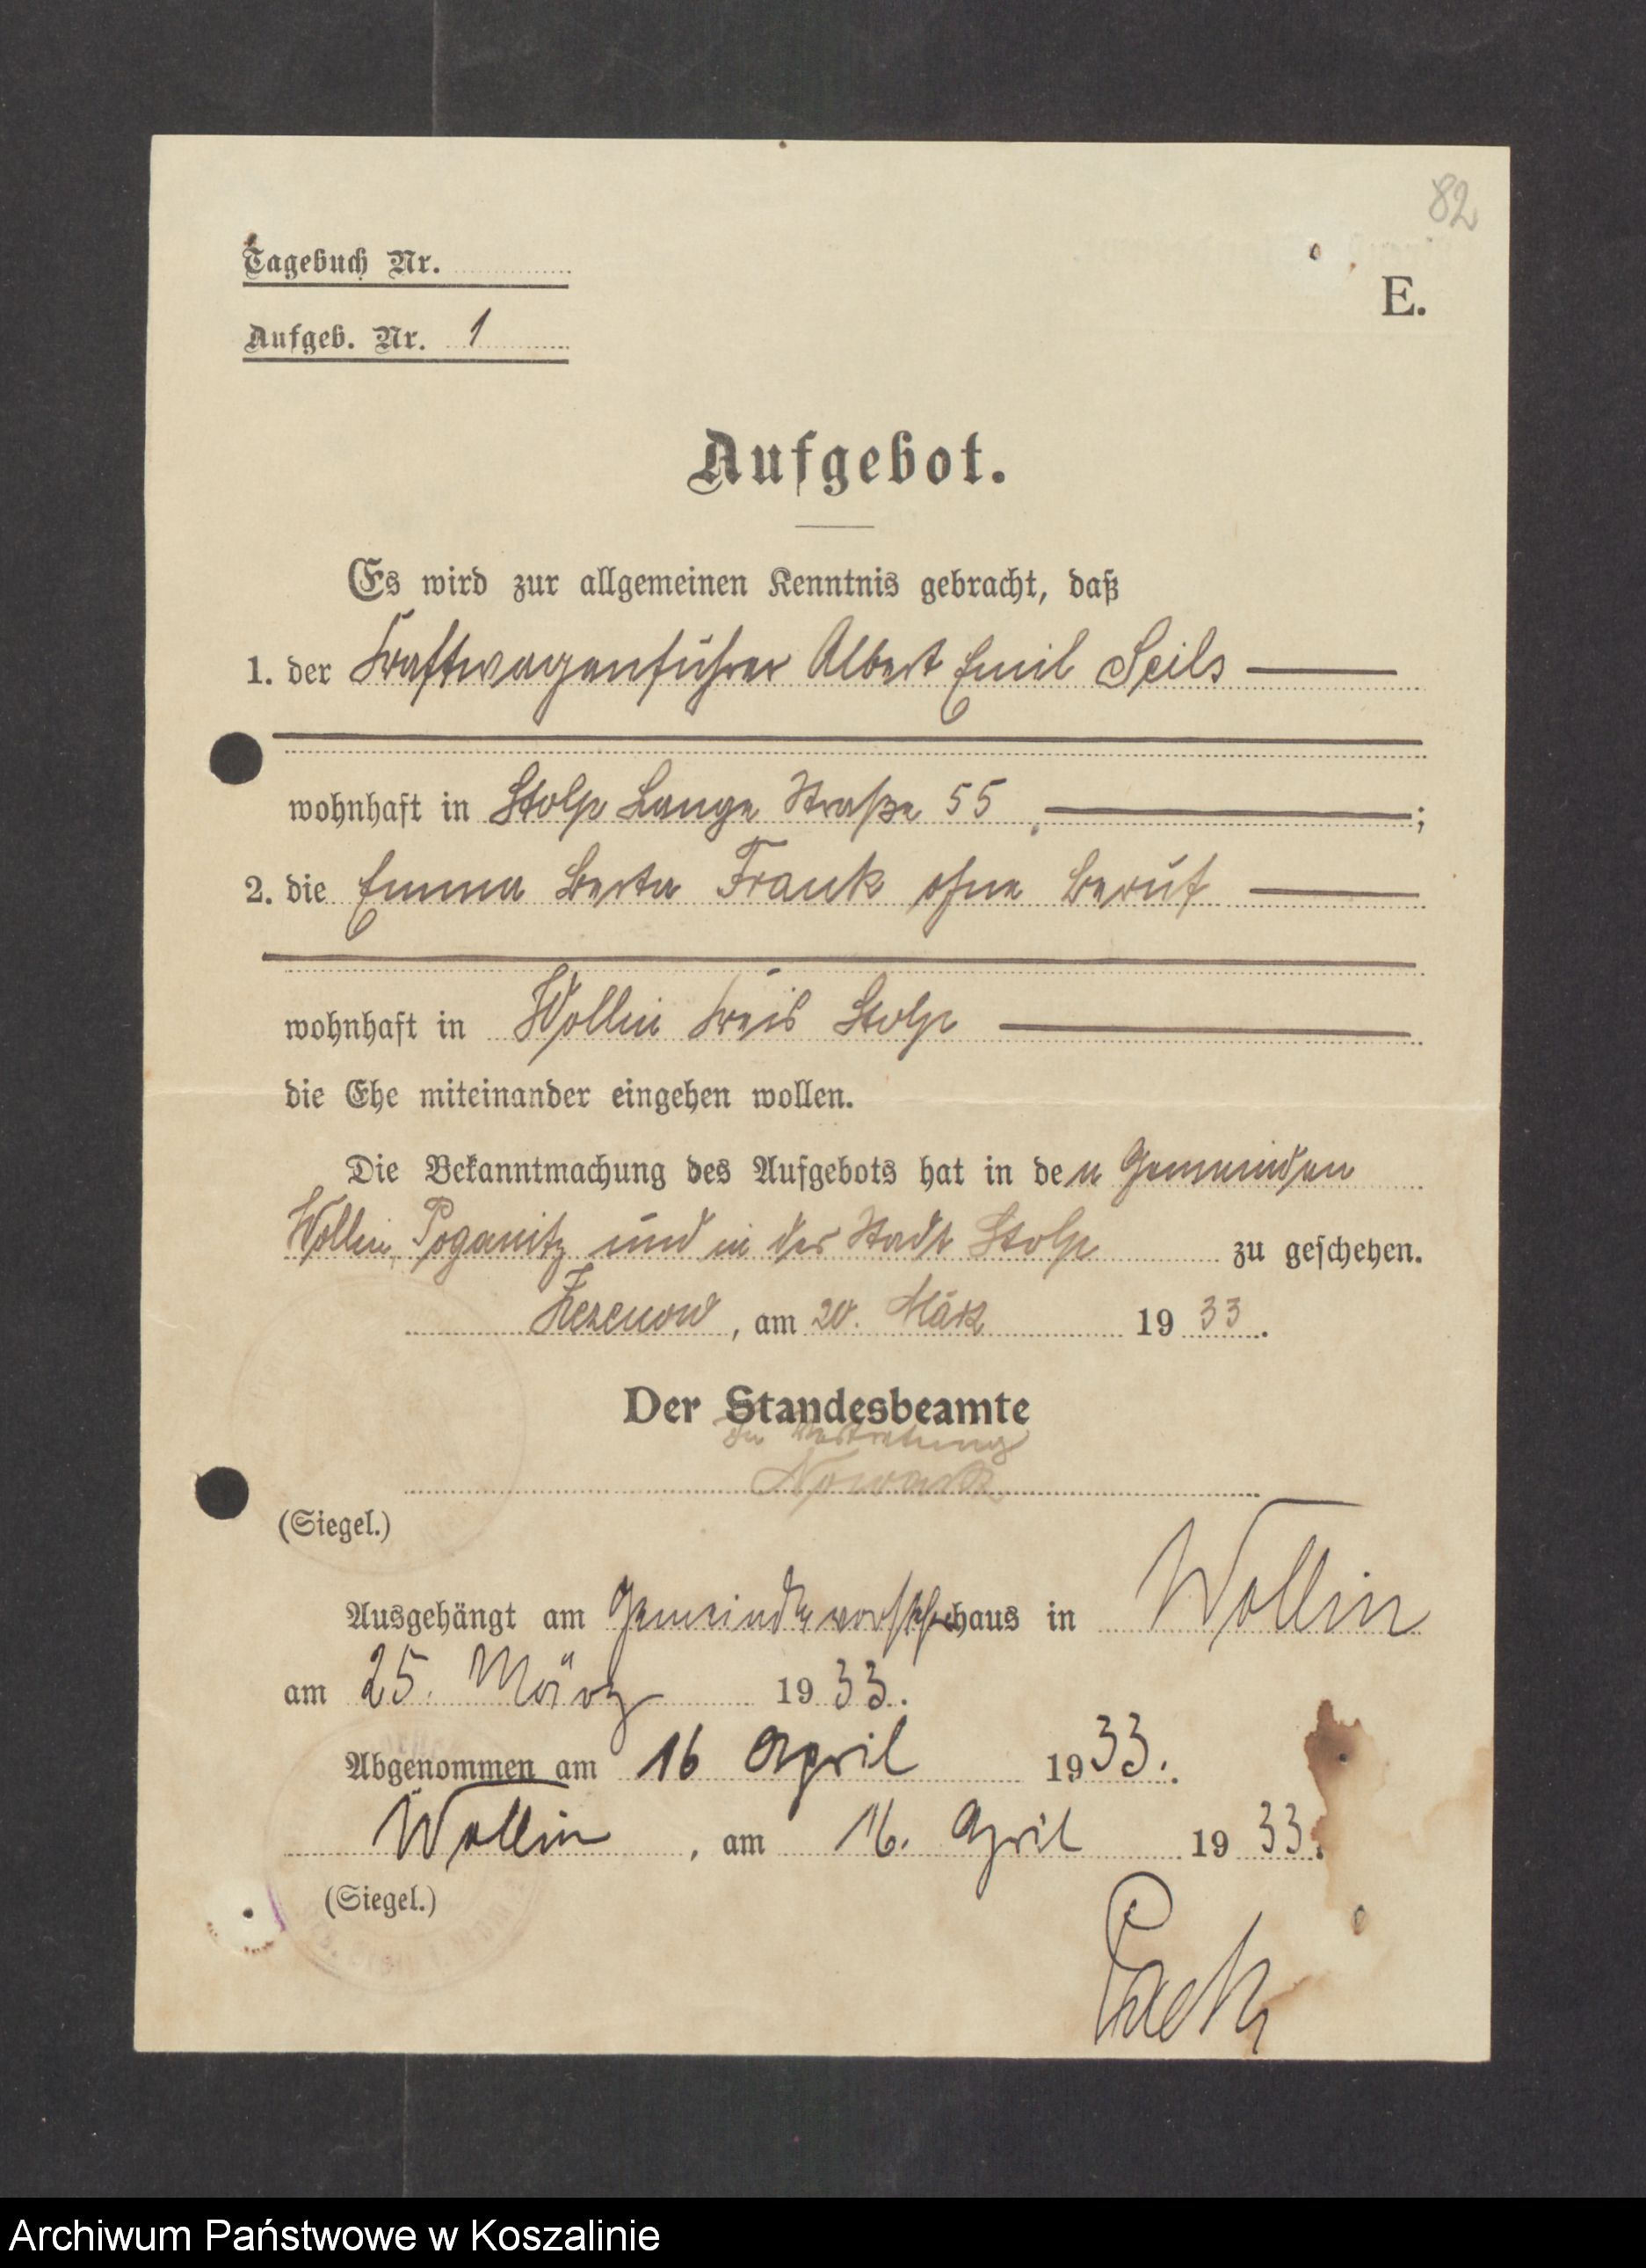 82
Tagebuch Nr.
E.
Aufgeb. Nr. 1
Aufgebot.
Es wird zur allgemeinen Kenntnis gebracht, daß
1. der Kraftwagenführer Albert Emil Seils
wohnhaft in Stolp Lange Straße 55 ;
2. die Emma Berta Frank ohne Beruf
wohnhaft in Wollin Kreis Stolp
die Ehe miteinander eingehen wollen.
Die Bekanntmachung des Aufgebots hat in den Gemeinden
Wollin, Poganitz und in der Stadt Stolp zu geschehen.
Zezenow, am 20. März 1933.
Der Standesbeamte
In Vertretung
Nowack
(Siegel.)
Ausgehängt am Gemeinde haus in Wollin
am 25. März 1933.
Abgenommen am 16 April 1933.
Wollin, am 16. April 1933.
(Siegel.)
Archiwum Państwowe w Koszalinie